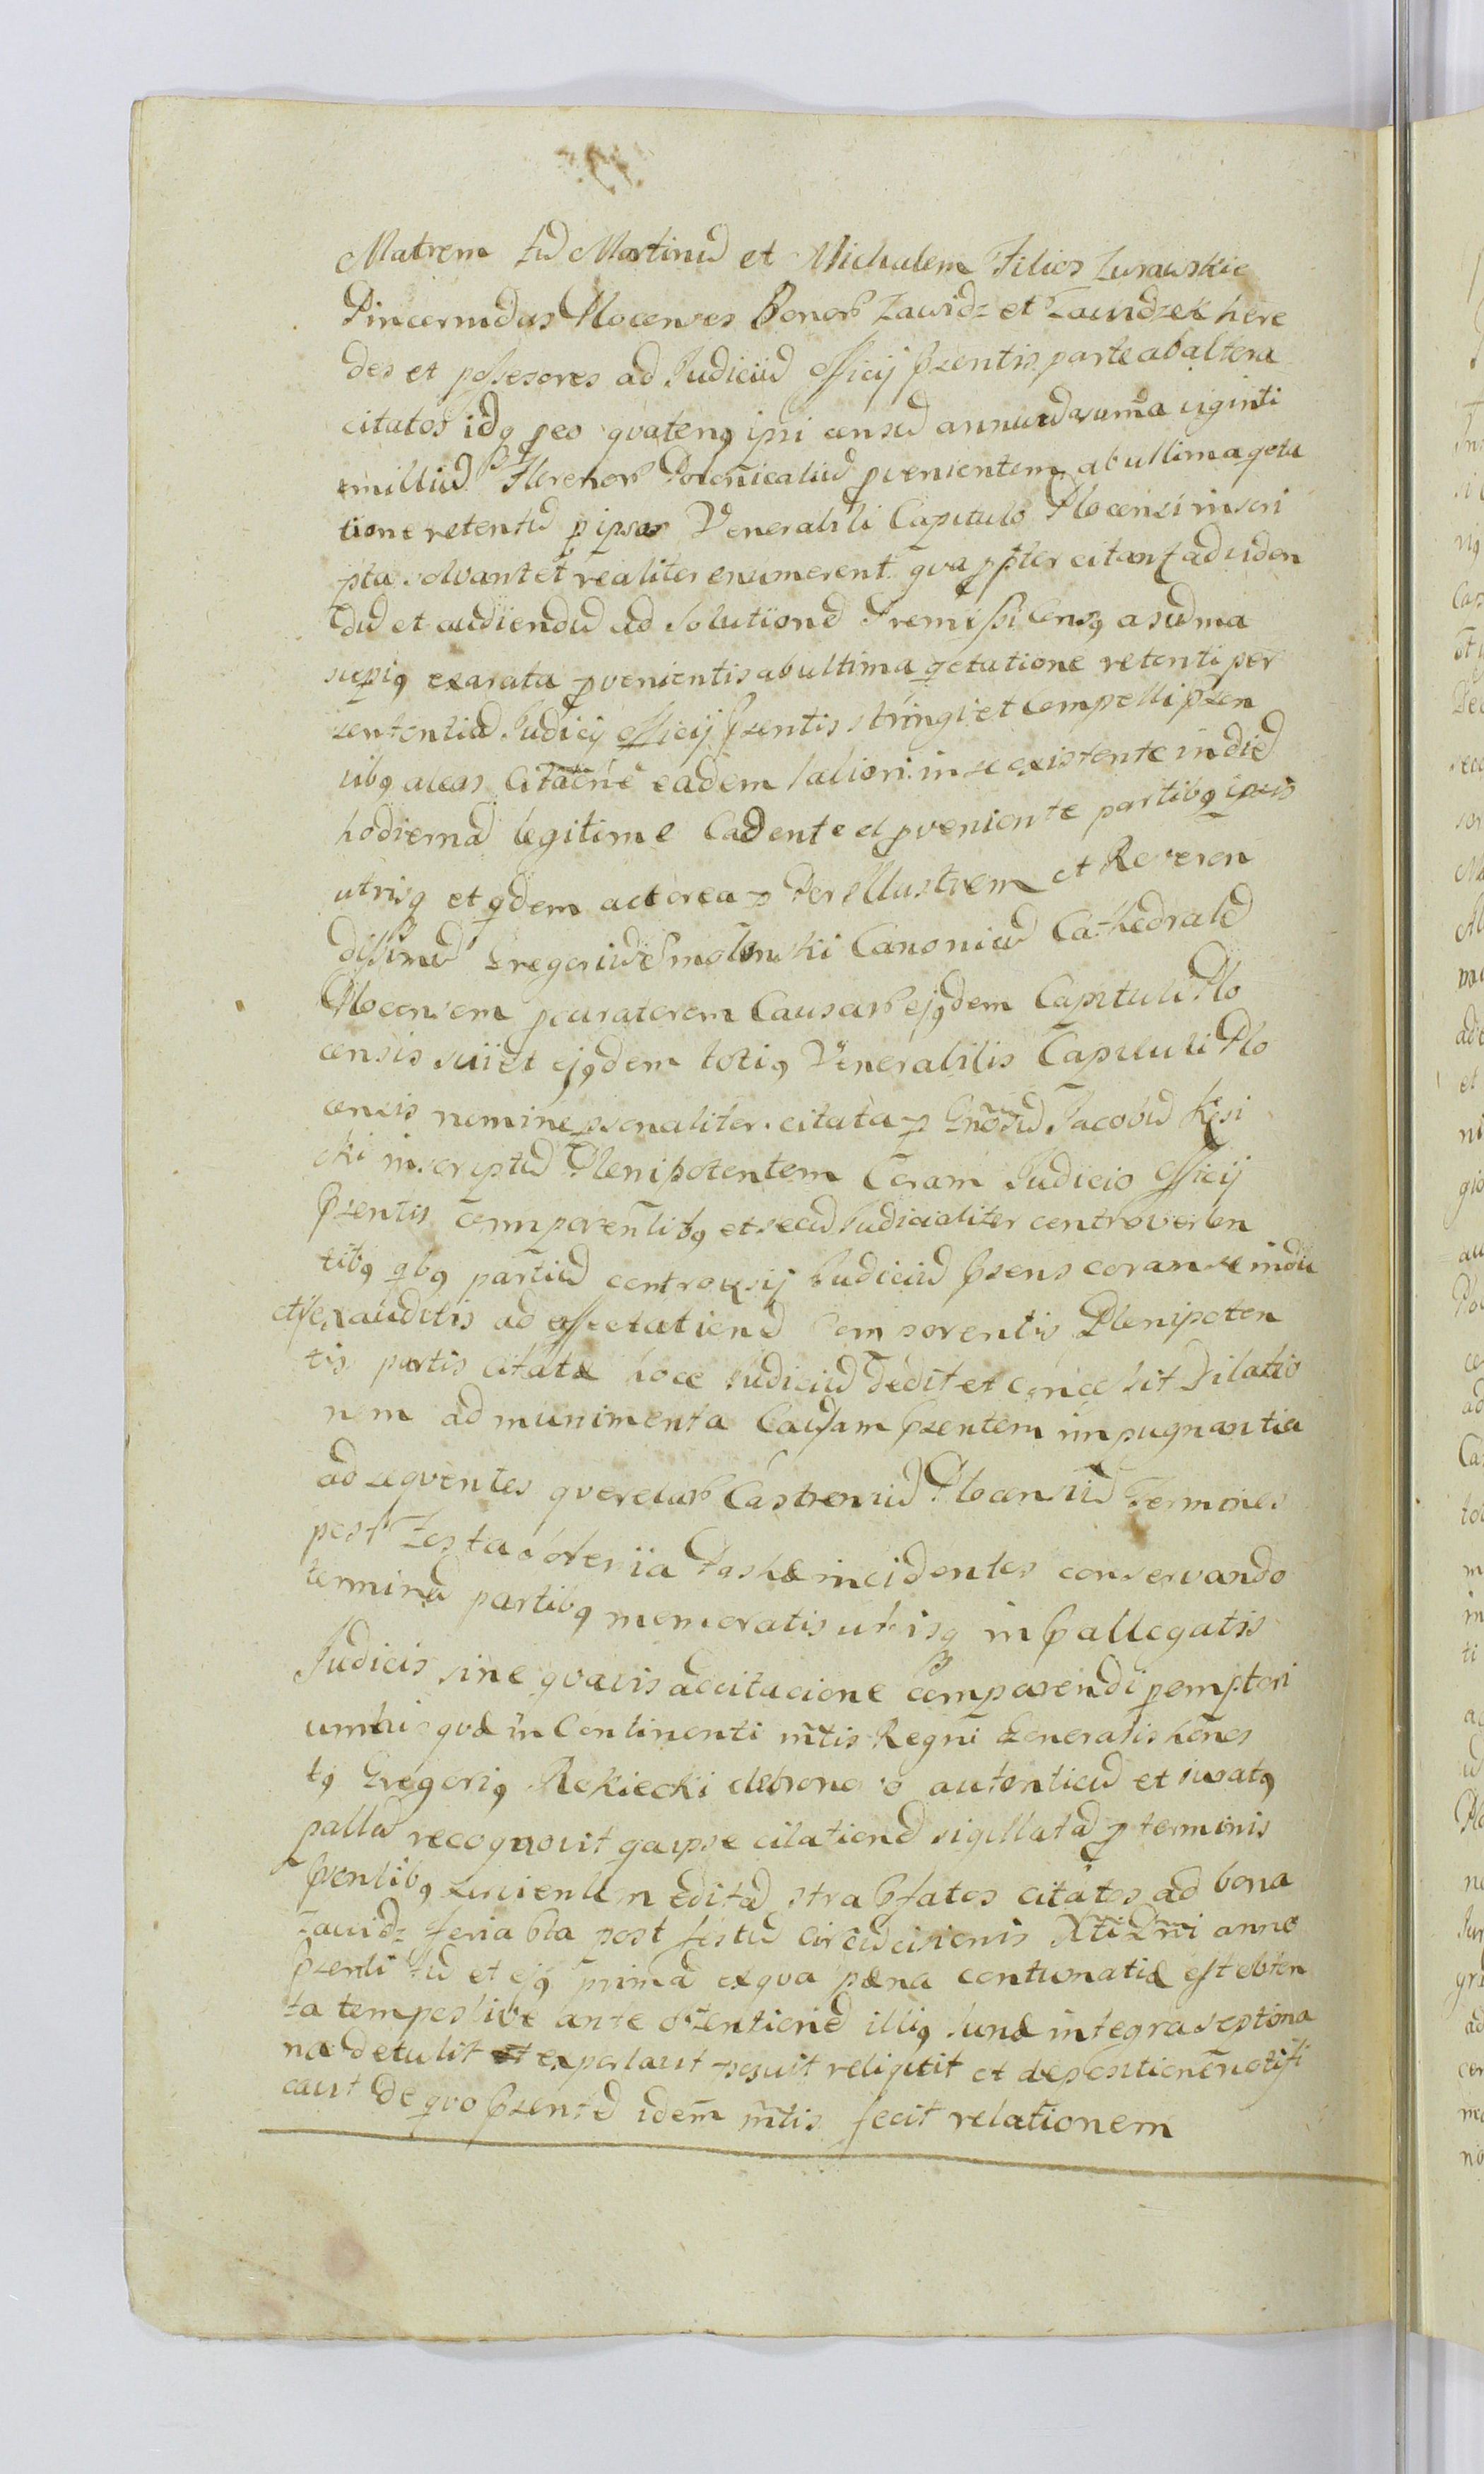 Matrem tũ Martinũ et Michalem Filios Zurawskie
Pincernidas Plocenses Bonorꝝ Zawidz et Zawidzek here
des et possesores ad Judiciũ officij pꝛzentis parte ab altera
citatos idqꝫ peo qvatenqꝫ ipsi censũ annuũ a suma viginti
milliũ Florenorꝝ Polonicaliũ pvenientem ab ultima qeta
tione retentũ p ipsos Venerabili Capitulo Plocensi inscri
pta solvant et realiter enumerent qvappter citant ad viden
dũ et audiendũ ad Solutionẽ Premissi Censqꝫ a sũma
supiqꝫ exarata pvenientis ab ultima qetatione retenti per
sententiã Judicij officij pzentis stringi et Compelli pzen
tibqꝫ citatne eadem latiori in se existente in diẽ
hodiernã legitime Cadente et pveniente partibqꝫ ipsis
utrisqꝫ et qdem actorea p Perillustrem et Reveren
dissimũ Gregoriũ Smolinski Canonicũ Cathedralẽ
Plocensem pcuratorem Causarꝝ ejqꝫdem Capituli Plo
censis sui et ejqꝫdem totiqꝫ Venerabilis Capituli Plo
censis nomine psonaliter citata p Gnosũ Jacobũ Kęsi
cki inscriptũ Plenipotentem Coram Judicio officij
pzentis comparentibqꝫ et secũ Judicialiter controverten
tibqꝫ qbqꝫ partiũ controvsij Judiciũ pzens coram se indu
ctis exauditis ad affectationẽ Comparentis Plenipoten
tis partis citatæ hocce Judiciũ dedit et concessit Dilatio
nem ad munimenta Causam pzentem impugnantia
ad seqventes qverelarꝝ Castrensiũ Plocensiũ Terminos
post Festa solennia Paschæ incidentes conservando
terminũ partibqꝫ memoratis utrisqꝫ in pallegatis
Judicis sine qvavis adcitacione comparendi pemptori
um hisqvæ in Continenti mtis Regni Generalis hones
tqꝫ Gregoriqꝫ Rekiecki autenticũ et juratqꝫ
pallũ recognovit qa ipse citationẽ sigillatã p terminis
pzentibqꝫ Servientem editã ctra pfatos citatos ad bona
Zawidz feria 6ta post festũ Circũcisionis Xti Dni anno
pzenti tũ et ejqꝫ primã ex qva pœna contumatiæ est obten
ta tempestive ante obtentionẽ illiqꝫ una integra septima
na detulit et exportavit posuit reliqvit et depositionẽ notifi
cavit de qvo pzentẽ idem mtis fecit relationem